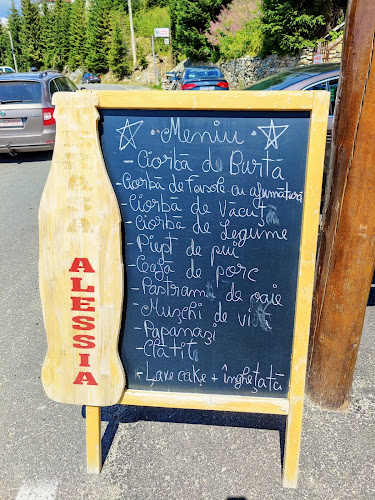 CASA
ALESSIA
Meniu
- Ciorbă de Burtă
- Ciorbă de fasole cu afumătură
- Ciorbă de văcuță
- Ciorbă de Legume
- Piept de pui
- Ceafă de porc
- Pastramă de oaie
- Mușchi de vită
- Papanași
- Clătite
- Lave cake + înghețată